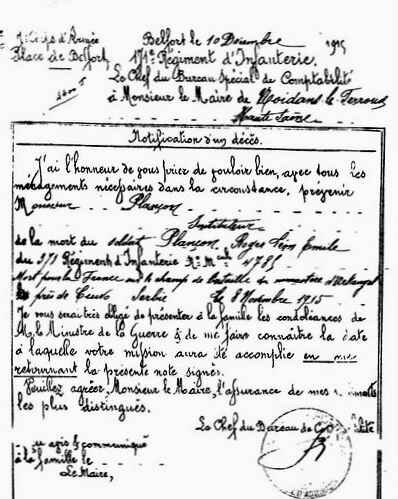 d'Armée
Place de Belfort
Belfort le 10 Décembre 1915
171e Régiment d'Infanterie.
Le Chef du Bureau Spécial de Comptabilité
à Monsieur le Maire de Noidans le Ferroux
Haute Saône
Notification d'un décès.
J'ai l'honneur de vous prier de vouloir bien, avec tous les
ménagements nécessaires dans la circonstance, prévenir
Monsieur Plançon
Instituteur
de la mort du soldat Plançon, Léon Emile
du 371 Régiment d'Infanterie N° Mle 4785
Mort pour la France sur le champ de bataille au monastère d'Arkangel
près de Serbie le 8 Novembre 1915
Je vous serai très obligé de présenter à la famille les condoléances de
Mr le Ministre de la Guerre & de me faire connaître la date
à laquelle votre mission aura été accomplie en me
retournant la présente note signée.
Veuillez agréer, Monsieur le Maire, l'assurance de mes
les plus distingués.
Le Chef du Bureau de
avis & communiqué
à la famille le
Le Maire,